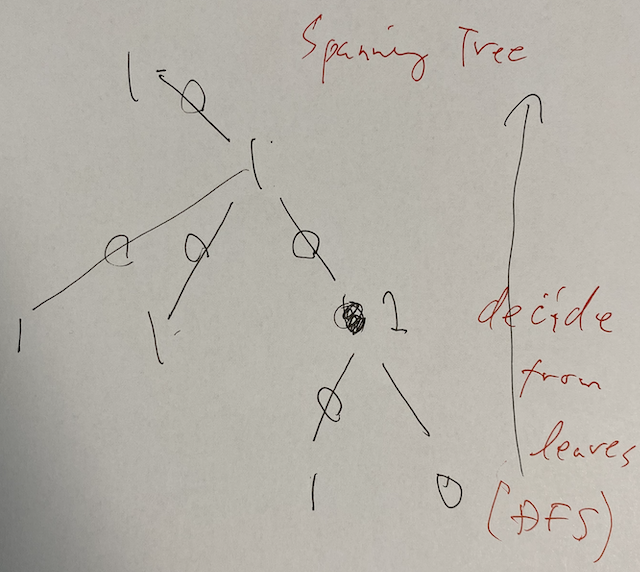 Spanning Tree
1
1
1
1
1
decide
from
leaves
1
0
(DFS)